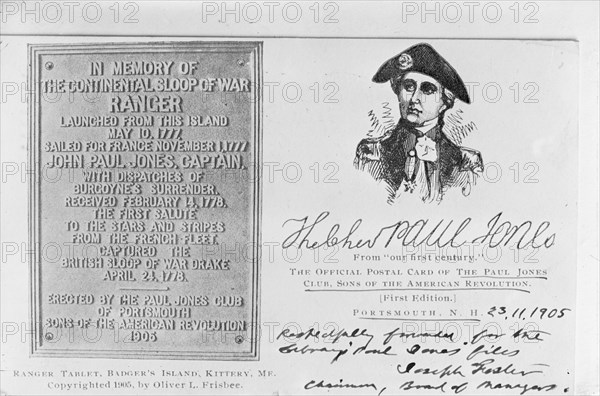 IN MEMORY OF
THE CONTINENTAL SLOOP OF WAR
RANGER
LAUNCHED FROM THIS ISLAND
MAY 10, 1777,
SAILED FOR FRANCE NOVEMBER 1, 1777
JOHN PAUL JONES, CAPTAIN,
WITH DISPATCHES OF
BURGOYNE'S SURRENDER.
RECEIVED FEBRUARY 14, 1778,
THE FIRST SALUTE
TO THE STARS AND STRIPES
FROM THE FRENCH FLEET.
CAPTURED THE
BRITISH SLOOP OF WAR DRAKE
APRIL 24, 1778.
ERECTED BY THE PAUL JONES CLUB
OF PORTSMOUTH
SONS OF THE AMERICAN REVOLUTION
1905
RANGER TABLET, BADGER'S ISLAND, KITTERY, ME.
Copyrighted 1905, by Oliver L. Frisbee.
Paul Jones
From "our first century."
THE OFFICIAL POSTAL CARD OF THE PAUL JONES
CLUB, SONS OF THE AMERICAN REVOLUTION.
[First Edition.]
PORTSMOUTH, N. H. 23.11.1905
Respectfully forwarded for the
Library Paul Jones files
Joseph Foster
Chairman, Board of Managers.
PHOTO12